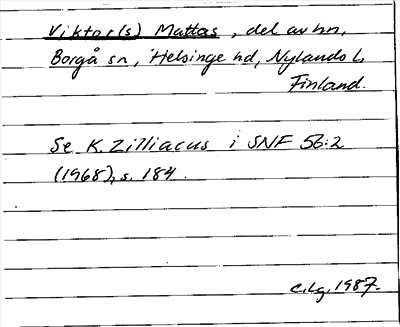 Viktor(s) Mattas, del av hn,
Borgå sn, Helsinge hd, Nylands l,
Finland.
Se K. Zilliacus i SNF 56:2
(1968), s. 184.
C.Lg. 1987.